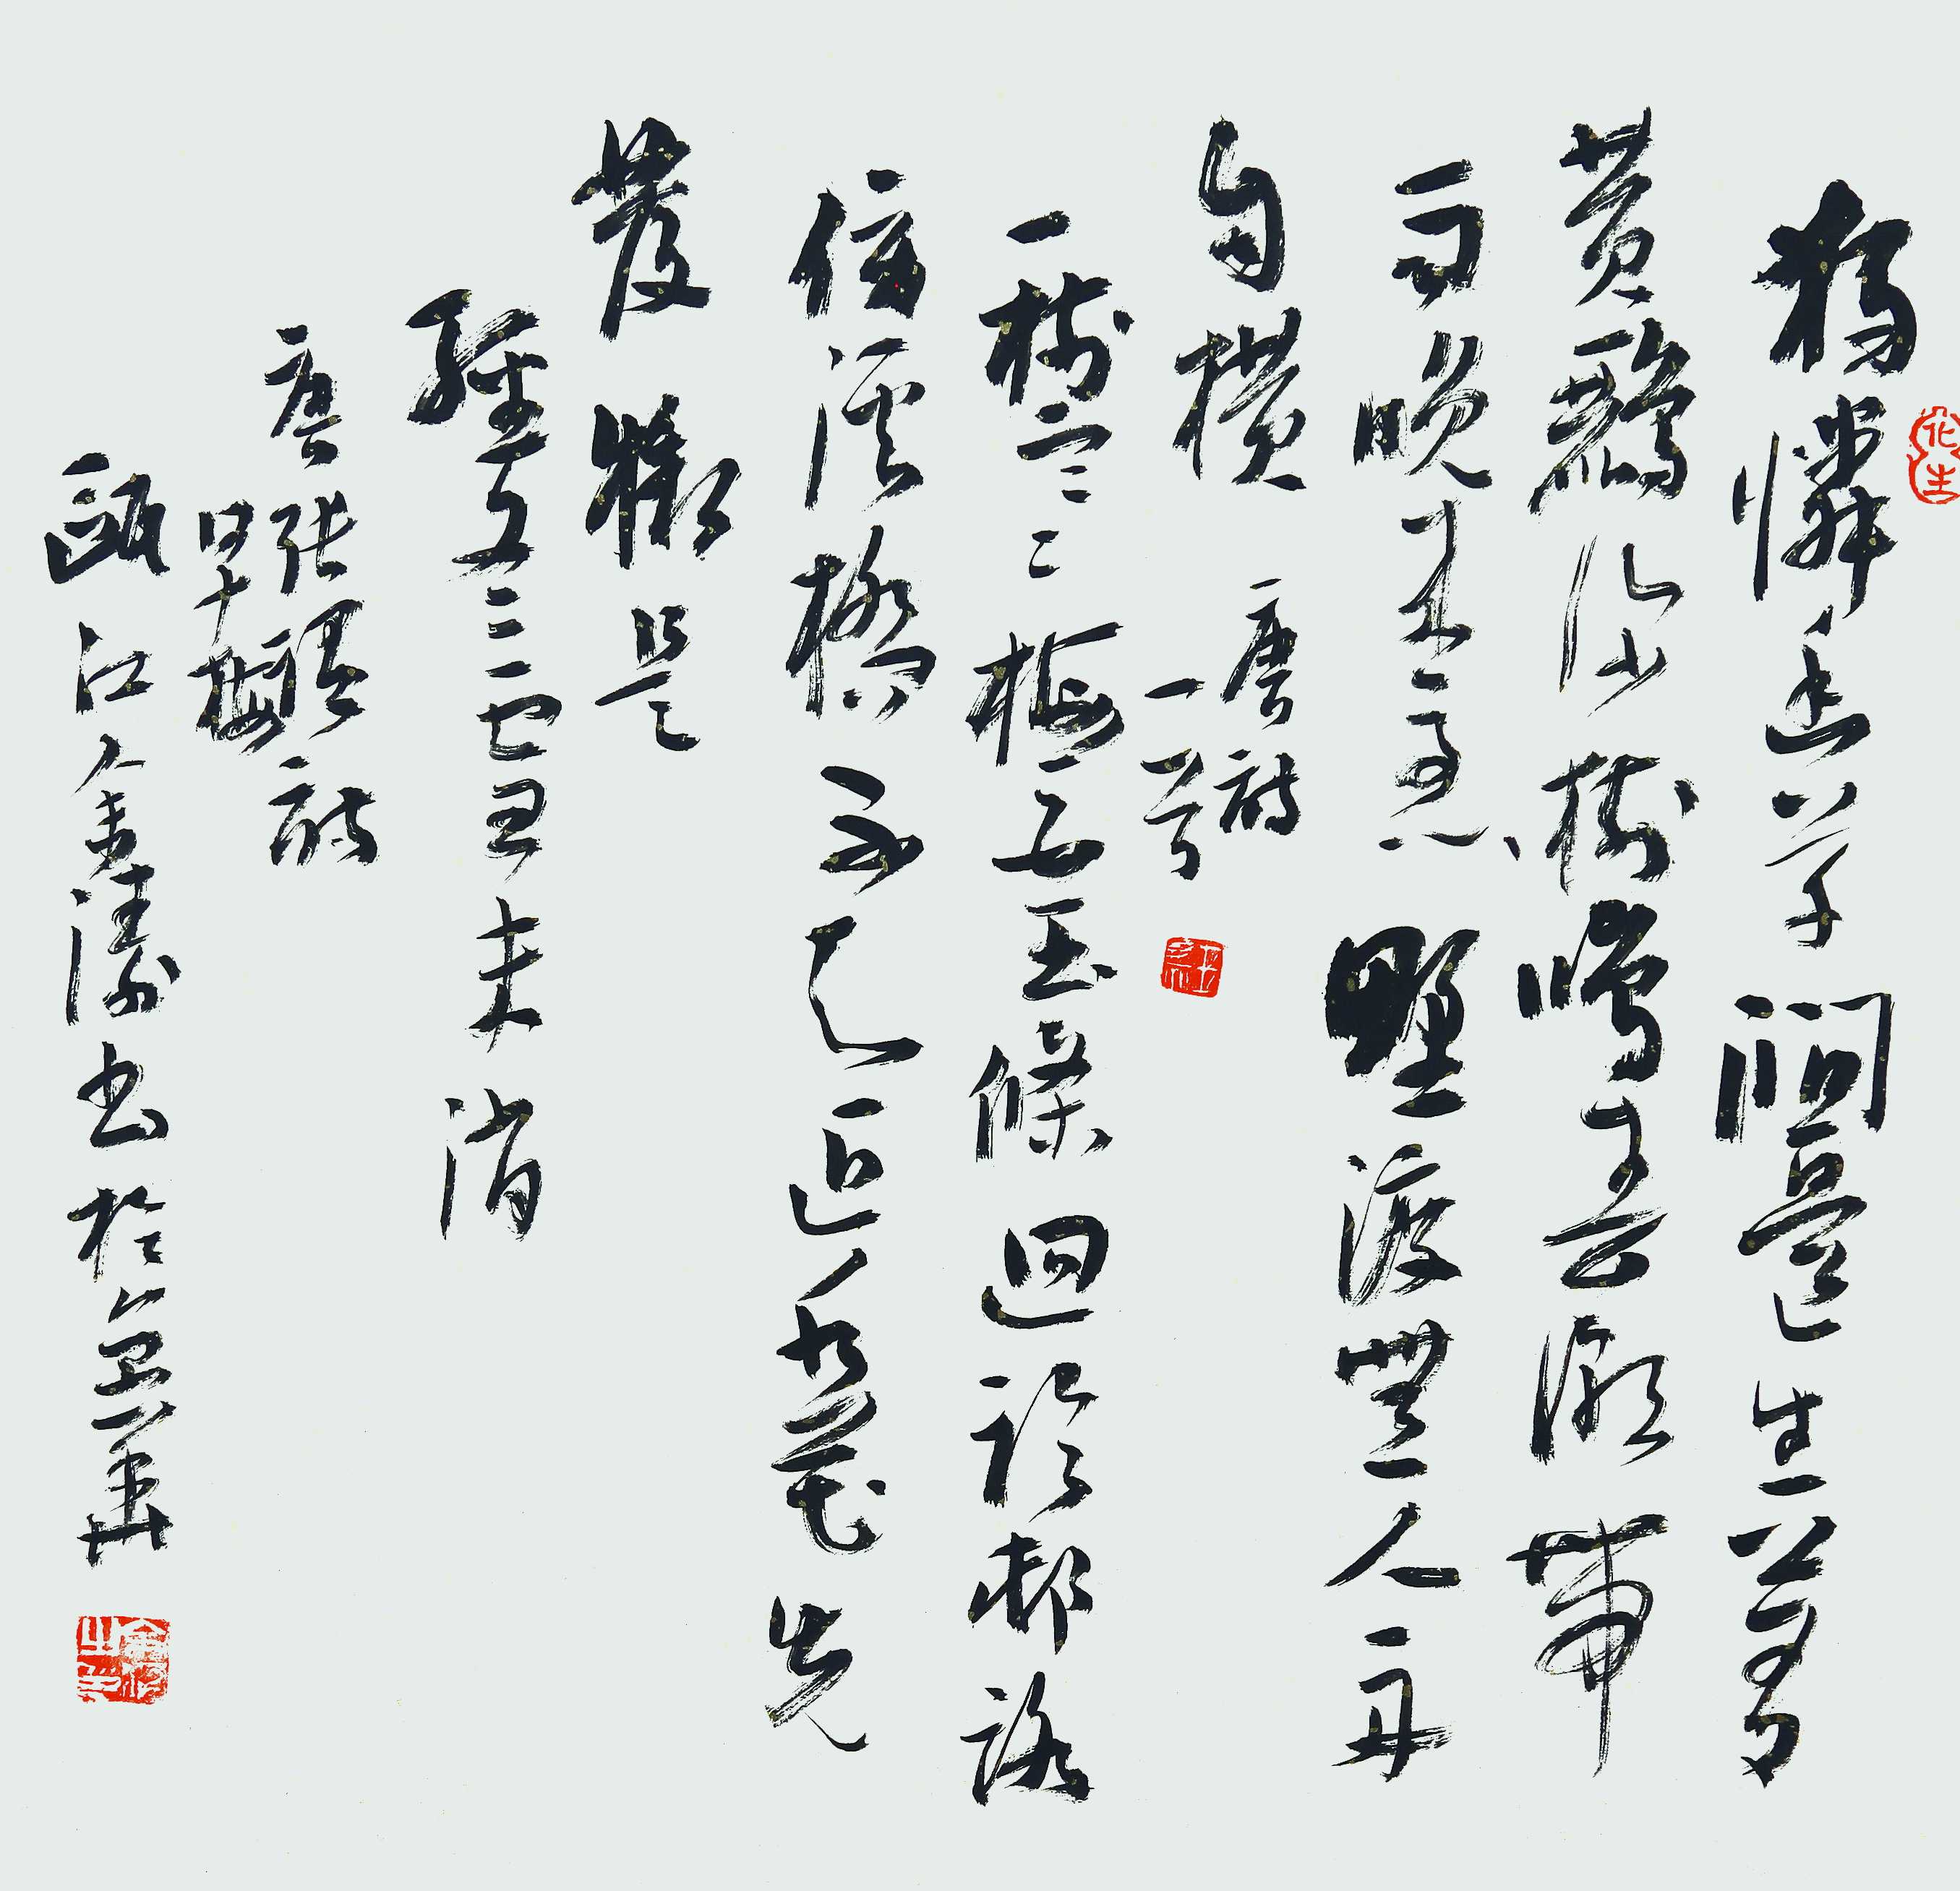 化生
獨憐幽草澗邊生上有
黃鸝深樹鳴春潮帶
雨晚來急野渡無人舟
自橫
唐詩
一首
一樹寒梅白玉條迴臨邨路
傍溪橋不知近水花先
發疑是
經冬雪未消
唐張謂詩
早梅
甌江金濤書於京華